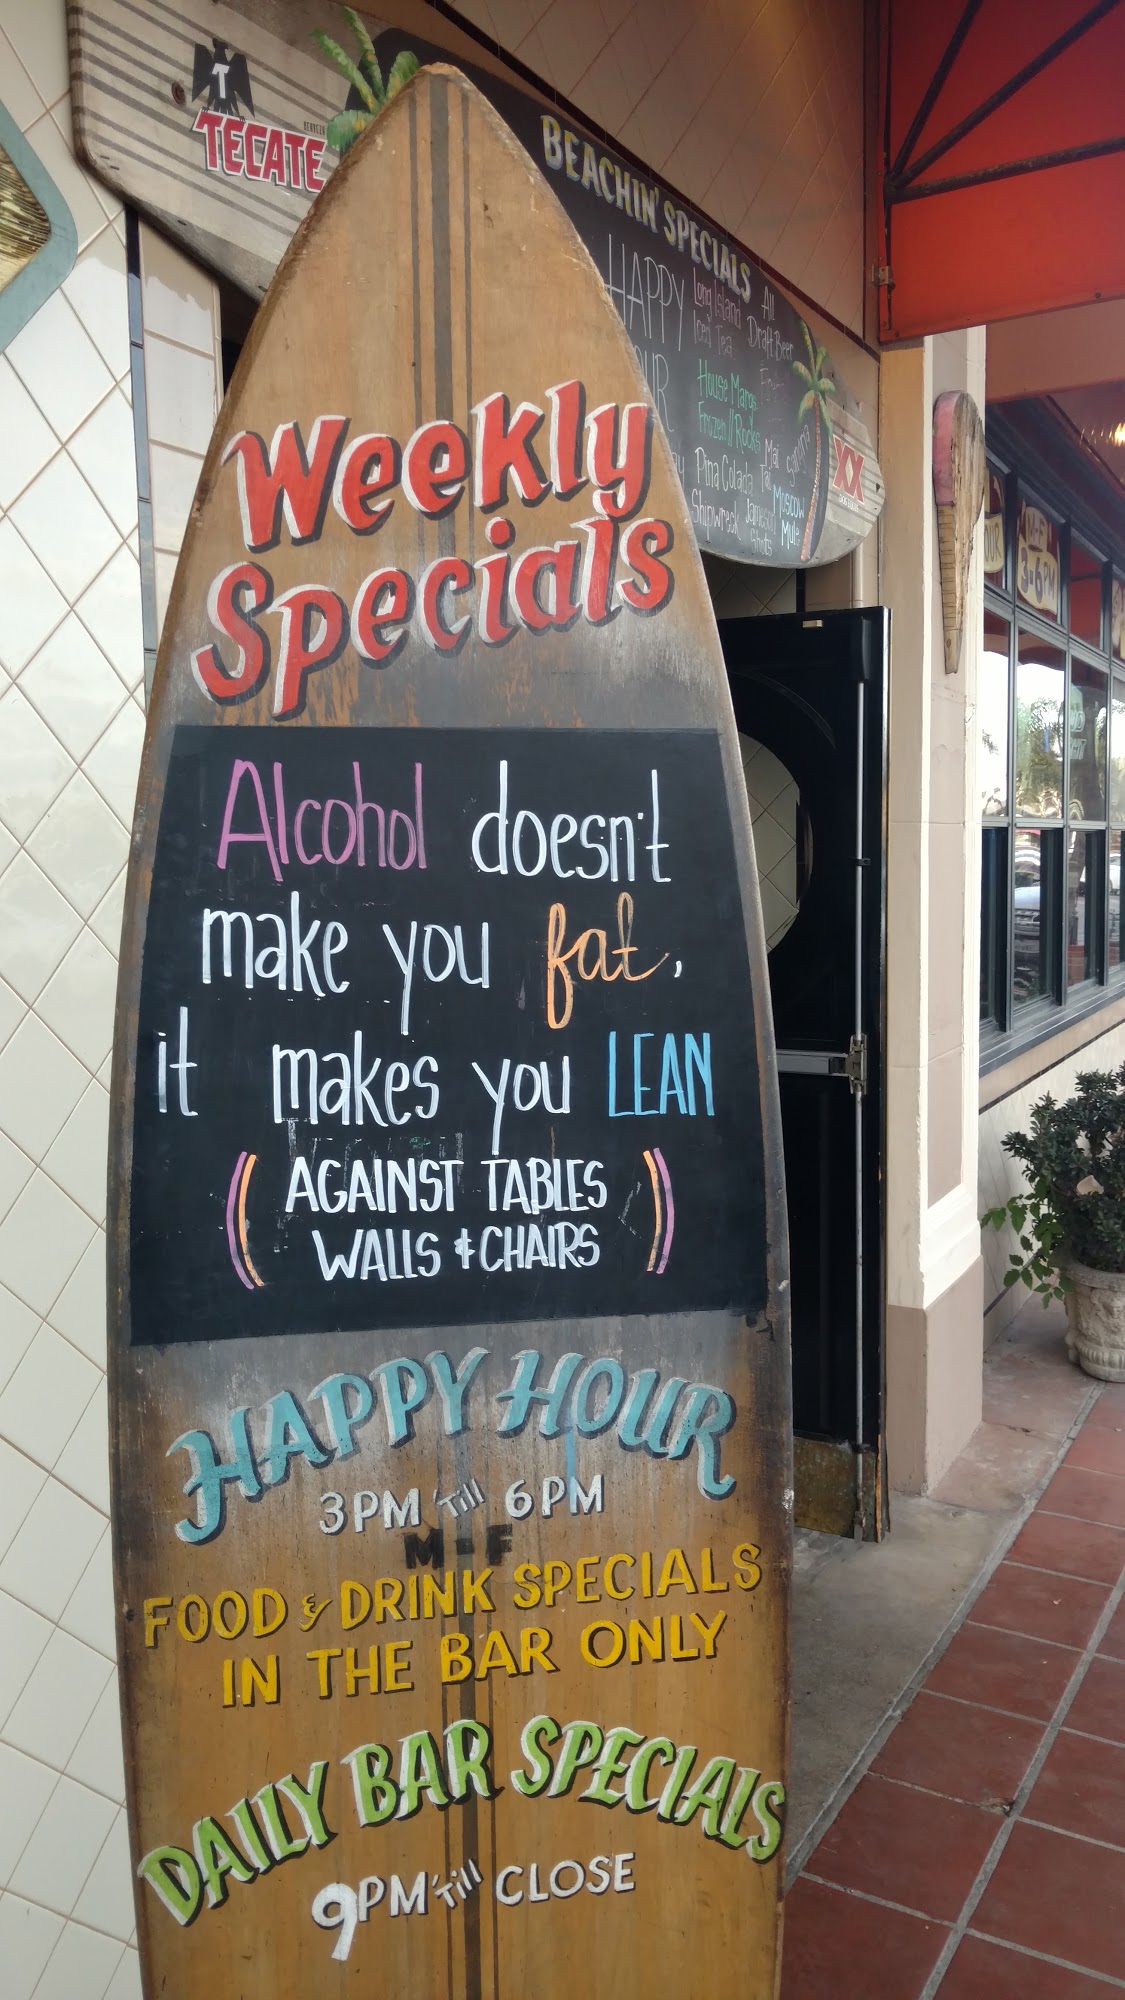 T
TECATE
BEACHIN' SPECIALS
HAPPY
Long Island
Iced Tea
All
Draft Beer
House Margs
Frozen // Rocks
Pina Colada
Shipwreck
Mai
Tai
Jameson
Shots
Moscow
Mule
XX
Weekly
Specials
Alcohol doesn't
make you fat,
it makes you LEAN
( AGAINST TABLES
WALLS & CHAIRS )
HAPPY HOUR
3PM 'Till 6PM
M-F
FOOD & DRINK SPECIALS
IN THE BAR ONLY
DAILY BAR SPECIALS
9PM 'Till CLOSE
M-F
3-6PM